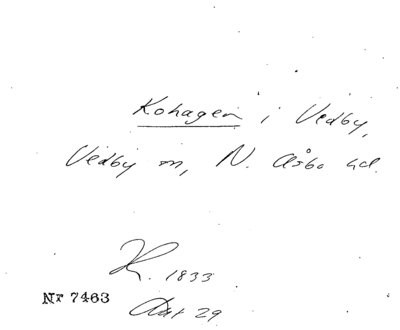 Kohagen i Vedby,
Vedby sn, N. Åsbo hd.
K. 1833
Nr 7463
Akt 29